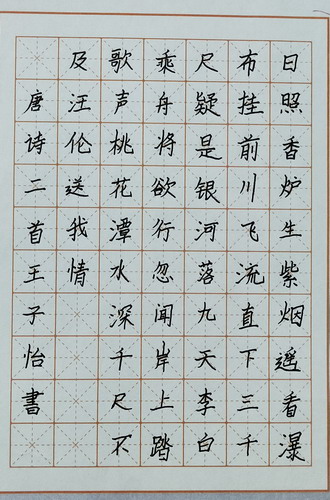 日照香炉生紫烟遥看瀑
布挂前川飞流直下三千
尺疑是银河落九天李白
乘舟将欲行忽闻岸上踏
歌声桃花潭水深千尺不
及汪伦送我情
唐诗二首王子怡書